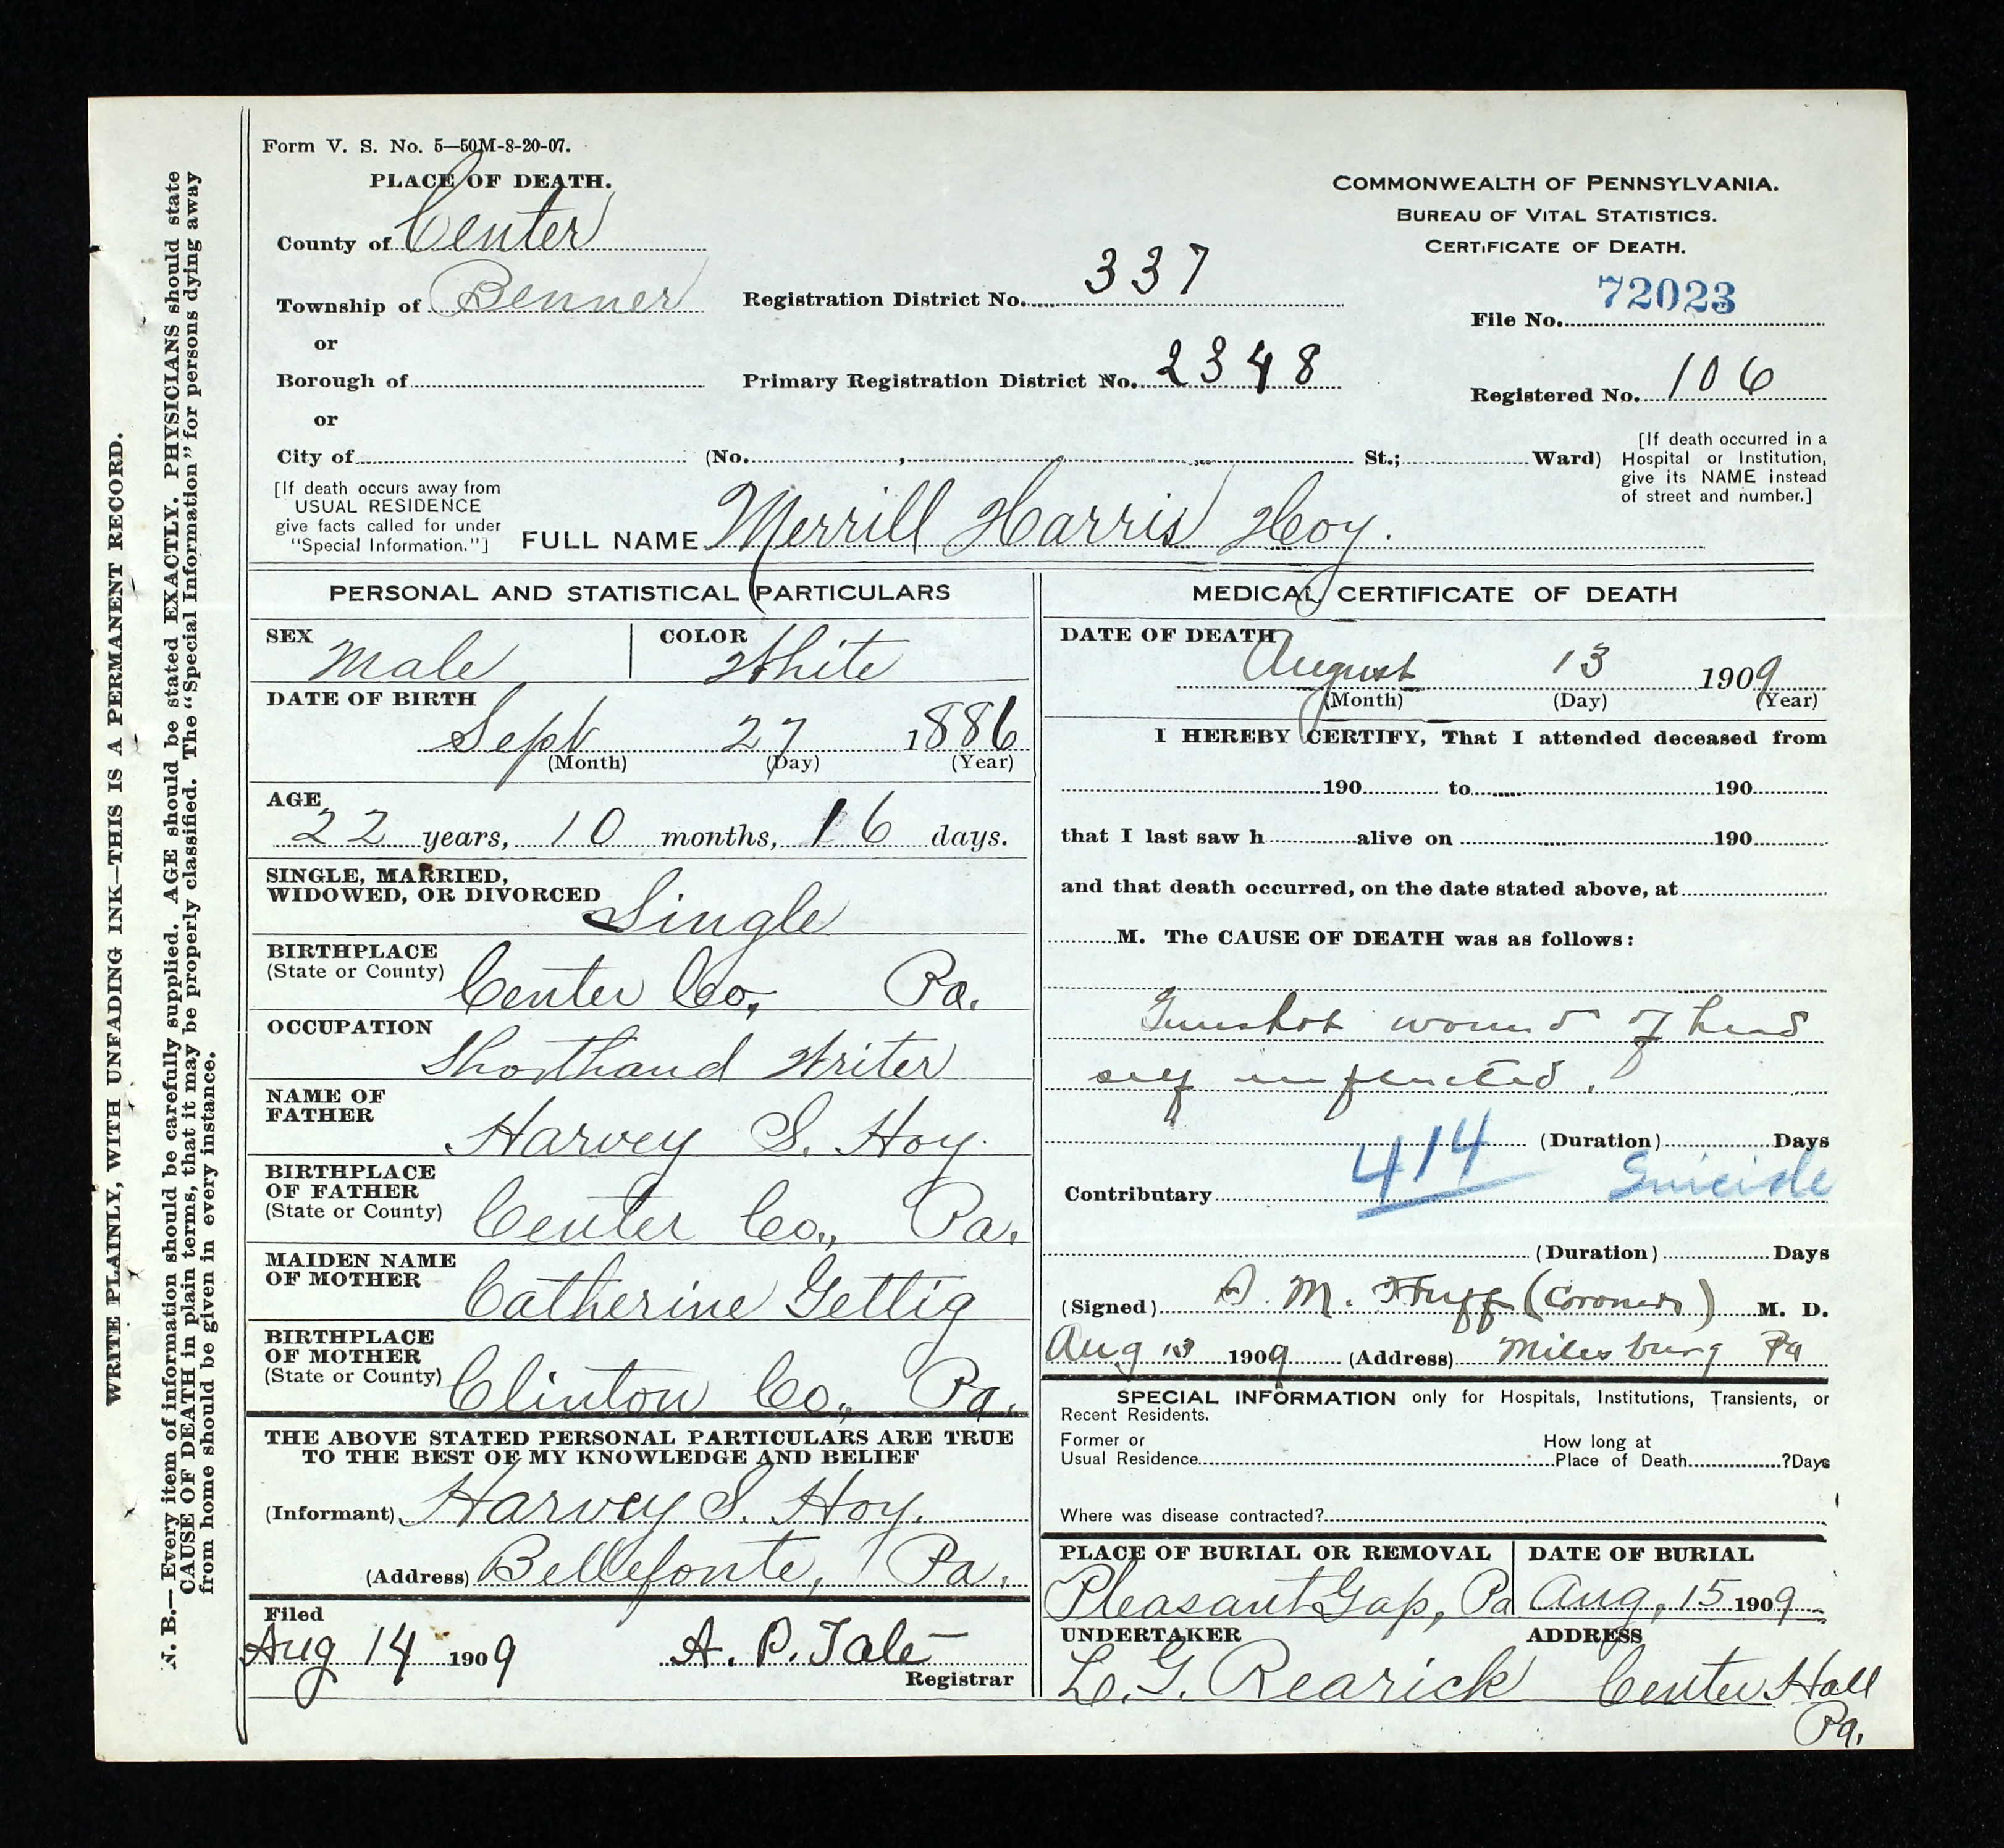 Form V. S. No. 5—50M-8-20-07.
PLACE OF DEATH.
County of Center
Township of Benner
or
Borough of
or
City of
(No. , St.; Ward)
COMMONWEALTH OF PENNSYLVANIA.
BUREAU OF VITAL STATISTICS.
CERTIFICATE OF DEATH.
Registration District No. 337
File No. 72023
Primary Registration District No. 2348
Registered No. 106
[If death occurred in a
Hospital or Institution,
give its NAME instead
of street and number.]
[If death occurs away from
USUAL RESIDENCE
give facts called for under
"Special Information."]
FULL NAME Merrill Harris Hoy.
PERSONAL AND STATISTICAL PARTICULARS
SEX Male
COLOR White
DATE OF BIRTH
Sept 27 1886
(Month) (Day) (Year)
AGE
22 years, 10 months, 16 days.
SINGLE, MARRIED,
WIDOWED, OR DIVORCED Single
BIRTHPLACE
(State or County) Center Co., Pa.
OCCUPATION
Shorthand Writer
NAME OF
FATHER
Harvey S. Hoy.
BIRTHPLACE
OF FATHER
(State or County) Center Co., Pa.
MAIDEN NAME
OF MOTHER
Catherine Gettig
BIRTHPLACE
OF MOTHER
(State or County) Clinton Co., Pa.
THE ABOVE STATED PERSONAL PARTICULARS ARE TRUE
TO THE BEST OF MY KNOWLEDGE AND BELIEF
(Informant) Harvey S. Hoy.
(Address) Bellefonte, Pa.
Filed
Aug 14 1909 A. P. Tate
Registrar
MEDICAL CERTIFICATE OF DEATH
DATE OF DEATH
August 13 1909
(Month) (Day) (Year)
I HEREBY CERTIFY, That I attended deceased from
190 to 190
that I last saw h alive on 190
and that death occurred, on the date stated above, at
M. The CAUSE OF DEATH was as follows:
Gunshot wound of head
self inflicted.
414 (Duration) Days
Contributary Suicide
(Duration) Days
(Signed) A. M. Huff (Coroner) M. D.
Aug 13 1909 (Address) Milesburg Pa
SPECIAL INFORMATION only for Hospitals, Institutions, Transients, or
Recent Residents.
Former or
Usual Residence
How long at
Place of Death ?Days
Where was disease contracted?
PLACE OF BURIAL OR REMOVAL
Pleasant Gap, Pa
DATE OF BURIAL
Aug. 15 1909
UNDERTAKER
L. G. Rearick
ADDRESS
Center Hall
Pa.
WRITE PLAINLY, WITH UNFADING INK—THIS IS A PERMANENT RECORD.
N. B.—Every item of information should be carefully supplied. AGE should be stated EXACTLY. PHYSICIANS should state
CAUSE OF DEATH in plain terms, that it may be properly classified. The "Special Information" for persons dying away
from home should be given in every instance.